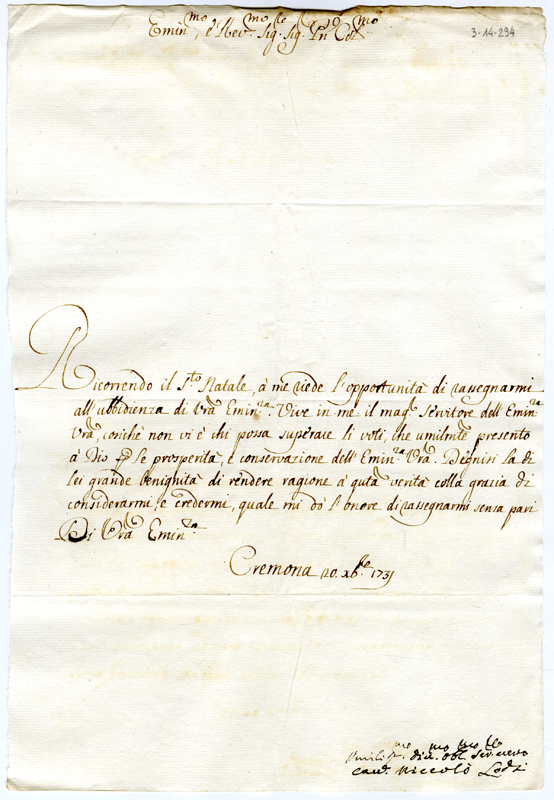 Emin.mo, e Rev.mo Sig. Sig. Pn Col.mo
3-14-294
Ricorrendo il S.to Natale, à me riede l'opportunità di rassegnarmi
all'ubbidienza di Vrã Emin.za. Vive in me il mag.r Servitore dell'Emin.za
Vrã, cosichè non vi è chi possa superare li voti, che umilm.te presento
à Dio p le prosperità, e conservazione dell'Emin.za Vrã. Degnisi la di
lei grande benignità di rendere ragione à q.ta verità colla grazia di
considerarmi, e credermi, quale mi dò l'onore di rassegnarmi senza pari
Di Vrã Emin.za
Cremona 20. Xb.re 1731
Umiliss.mo div.mo obl.mo Ser.re vero
Niccolò Lodi